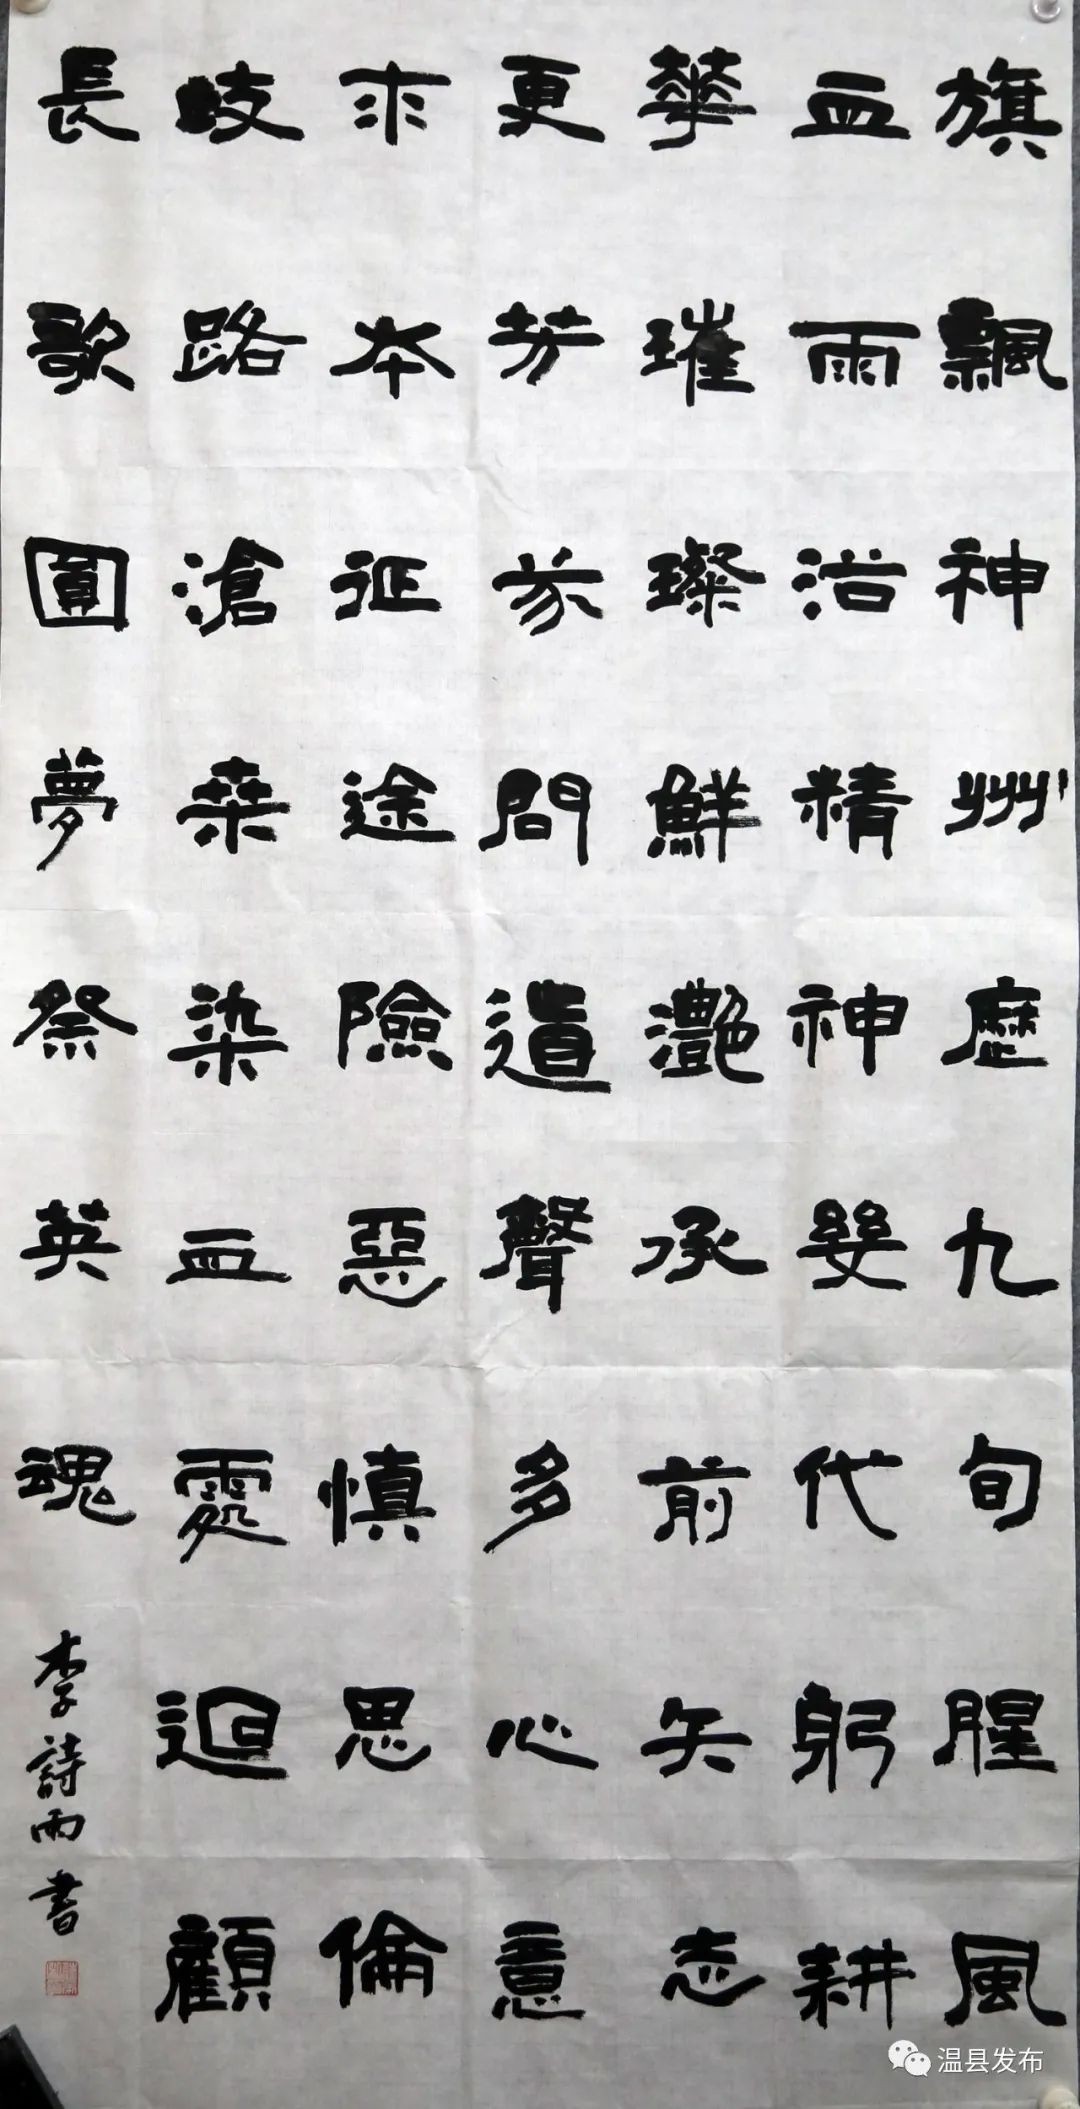 旗飄神州歷九旬腥風
血雨沿精神幾代躬耕
華璀璨鮮灧承前矢志
更芳芬問道聲多心意
求本征途險惡慎思倫
歧路滄桑染血處迴顧
長歌圓夢祭英魂
李詩雨書
温县发布